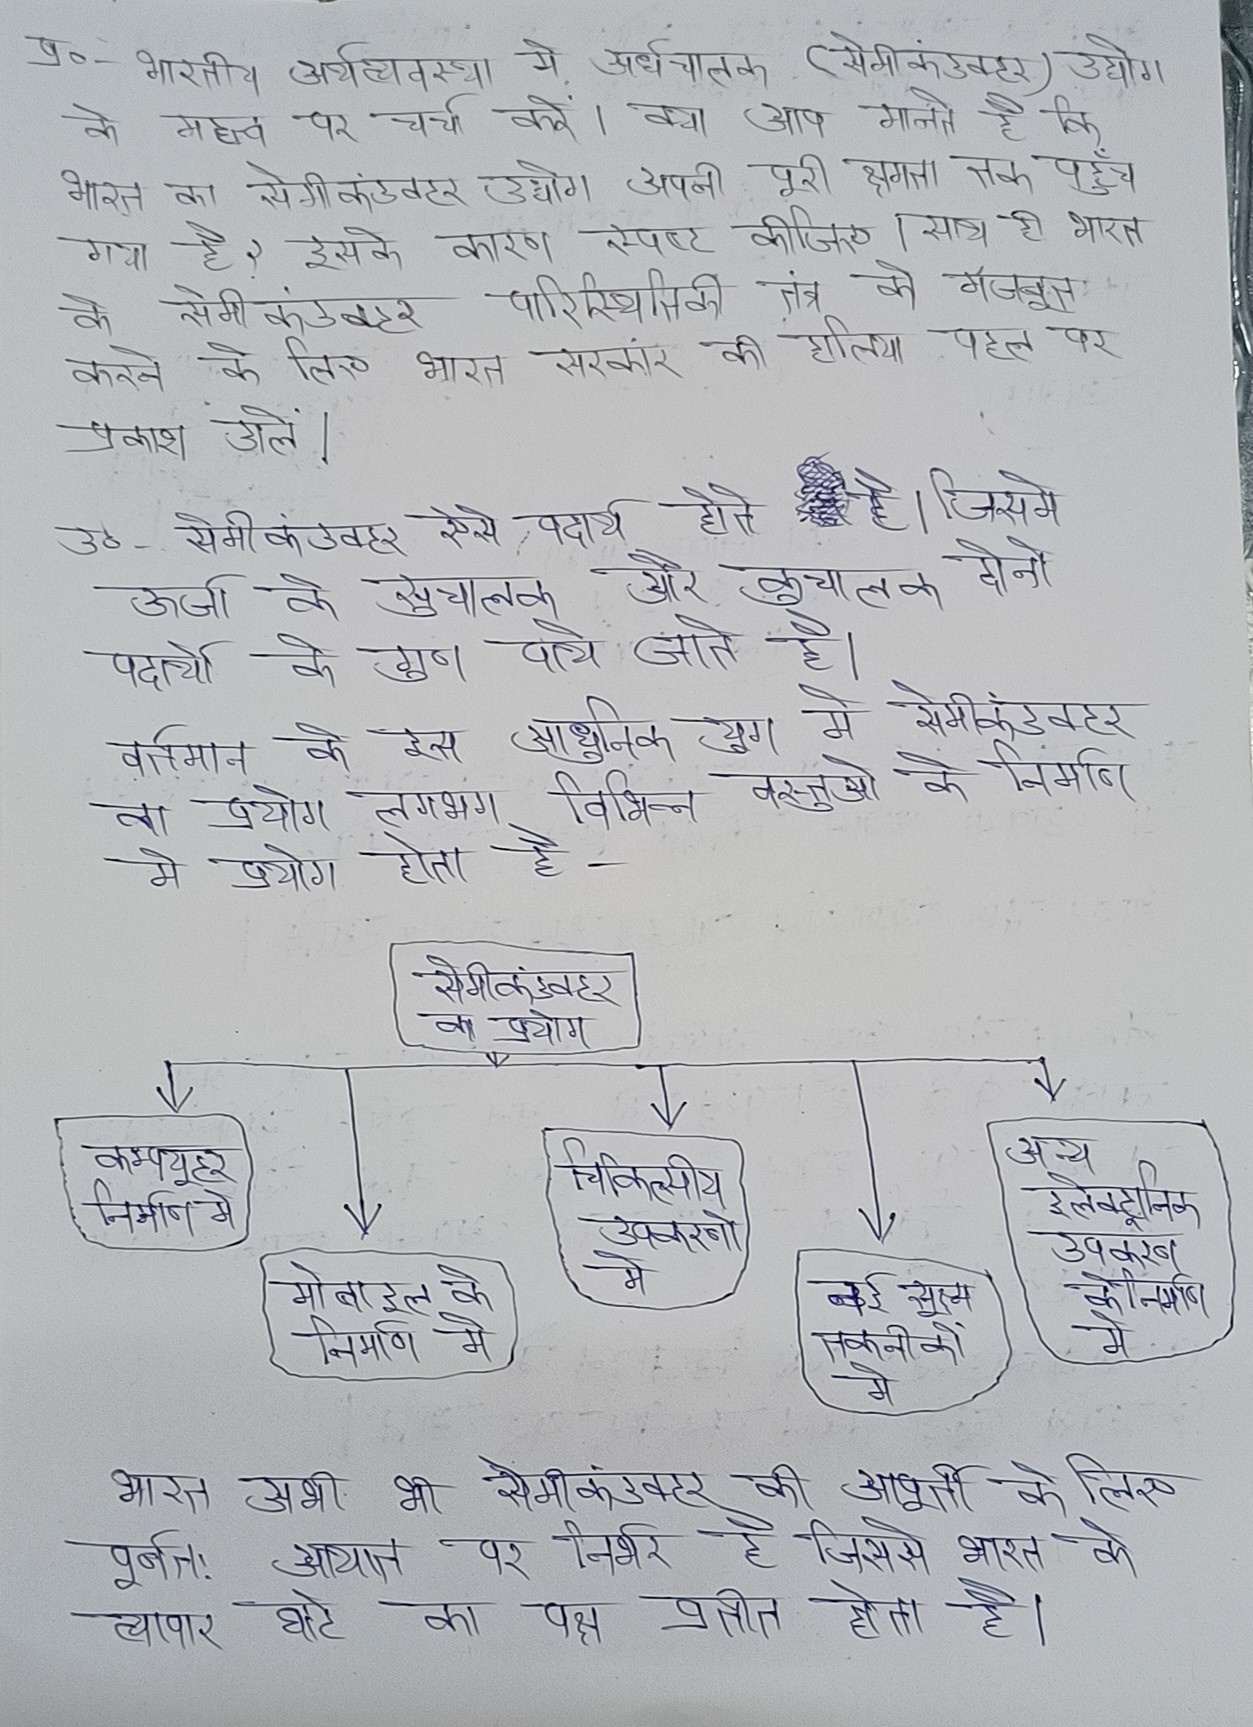 प्र०- भारतीय अर्थव्यवस्था मे अर्धचालक (सेमीकंडक्टर) उद्योग
के महत्व पर चर्चा करें। क्या आप मानते है कि
भारत का सेमीकंडक्टर उद्योग अपनी पूरी क्षमता तक पहुँच
गया है? इसके कारण स्पष्ट कीजिए। साथ ही भारत
के सेमीकंडक्टर पारिस्थितिकी तंत्र को मजबूत
करने के लिए भारत सरकार की हालिया पहल पर
प्रकाश डालें।
उ०- सेमीकंडक्टर ऐसे पदार्थ होते है। जिसमे
ऊर्जा के सुचालक और कुचालक दोनो
पदार्थो के गुण पाये जाते है।
वर्तमान के इस आधुनिक युग मे सेमीकंडक्टर
का प्रयोग लगभग विभिन्न वस्तुओ के निर्माण
मे प्रयोग होता है -
सेमीकंडक्टर
का प्रयोग
कम्प्यूटर
निर्माण मे
मोबाइल के
निर्माण मे
चिकित्सीय
उपकरणो
मे
कई सूक्ष्म
तकनीकों
मे
अन्य
इलेक्ट्रानिक
उपकरण
के निर्माण
मे
भारत अभी भी सेमीकंडक्टर की आपूर्ती के लिए
पूर्णतः आयात पर निर्भर है जिससे भारत के
व्यापार घाटे का पक्ष प्रतीत होता है।